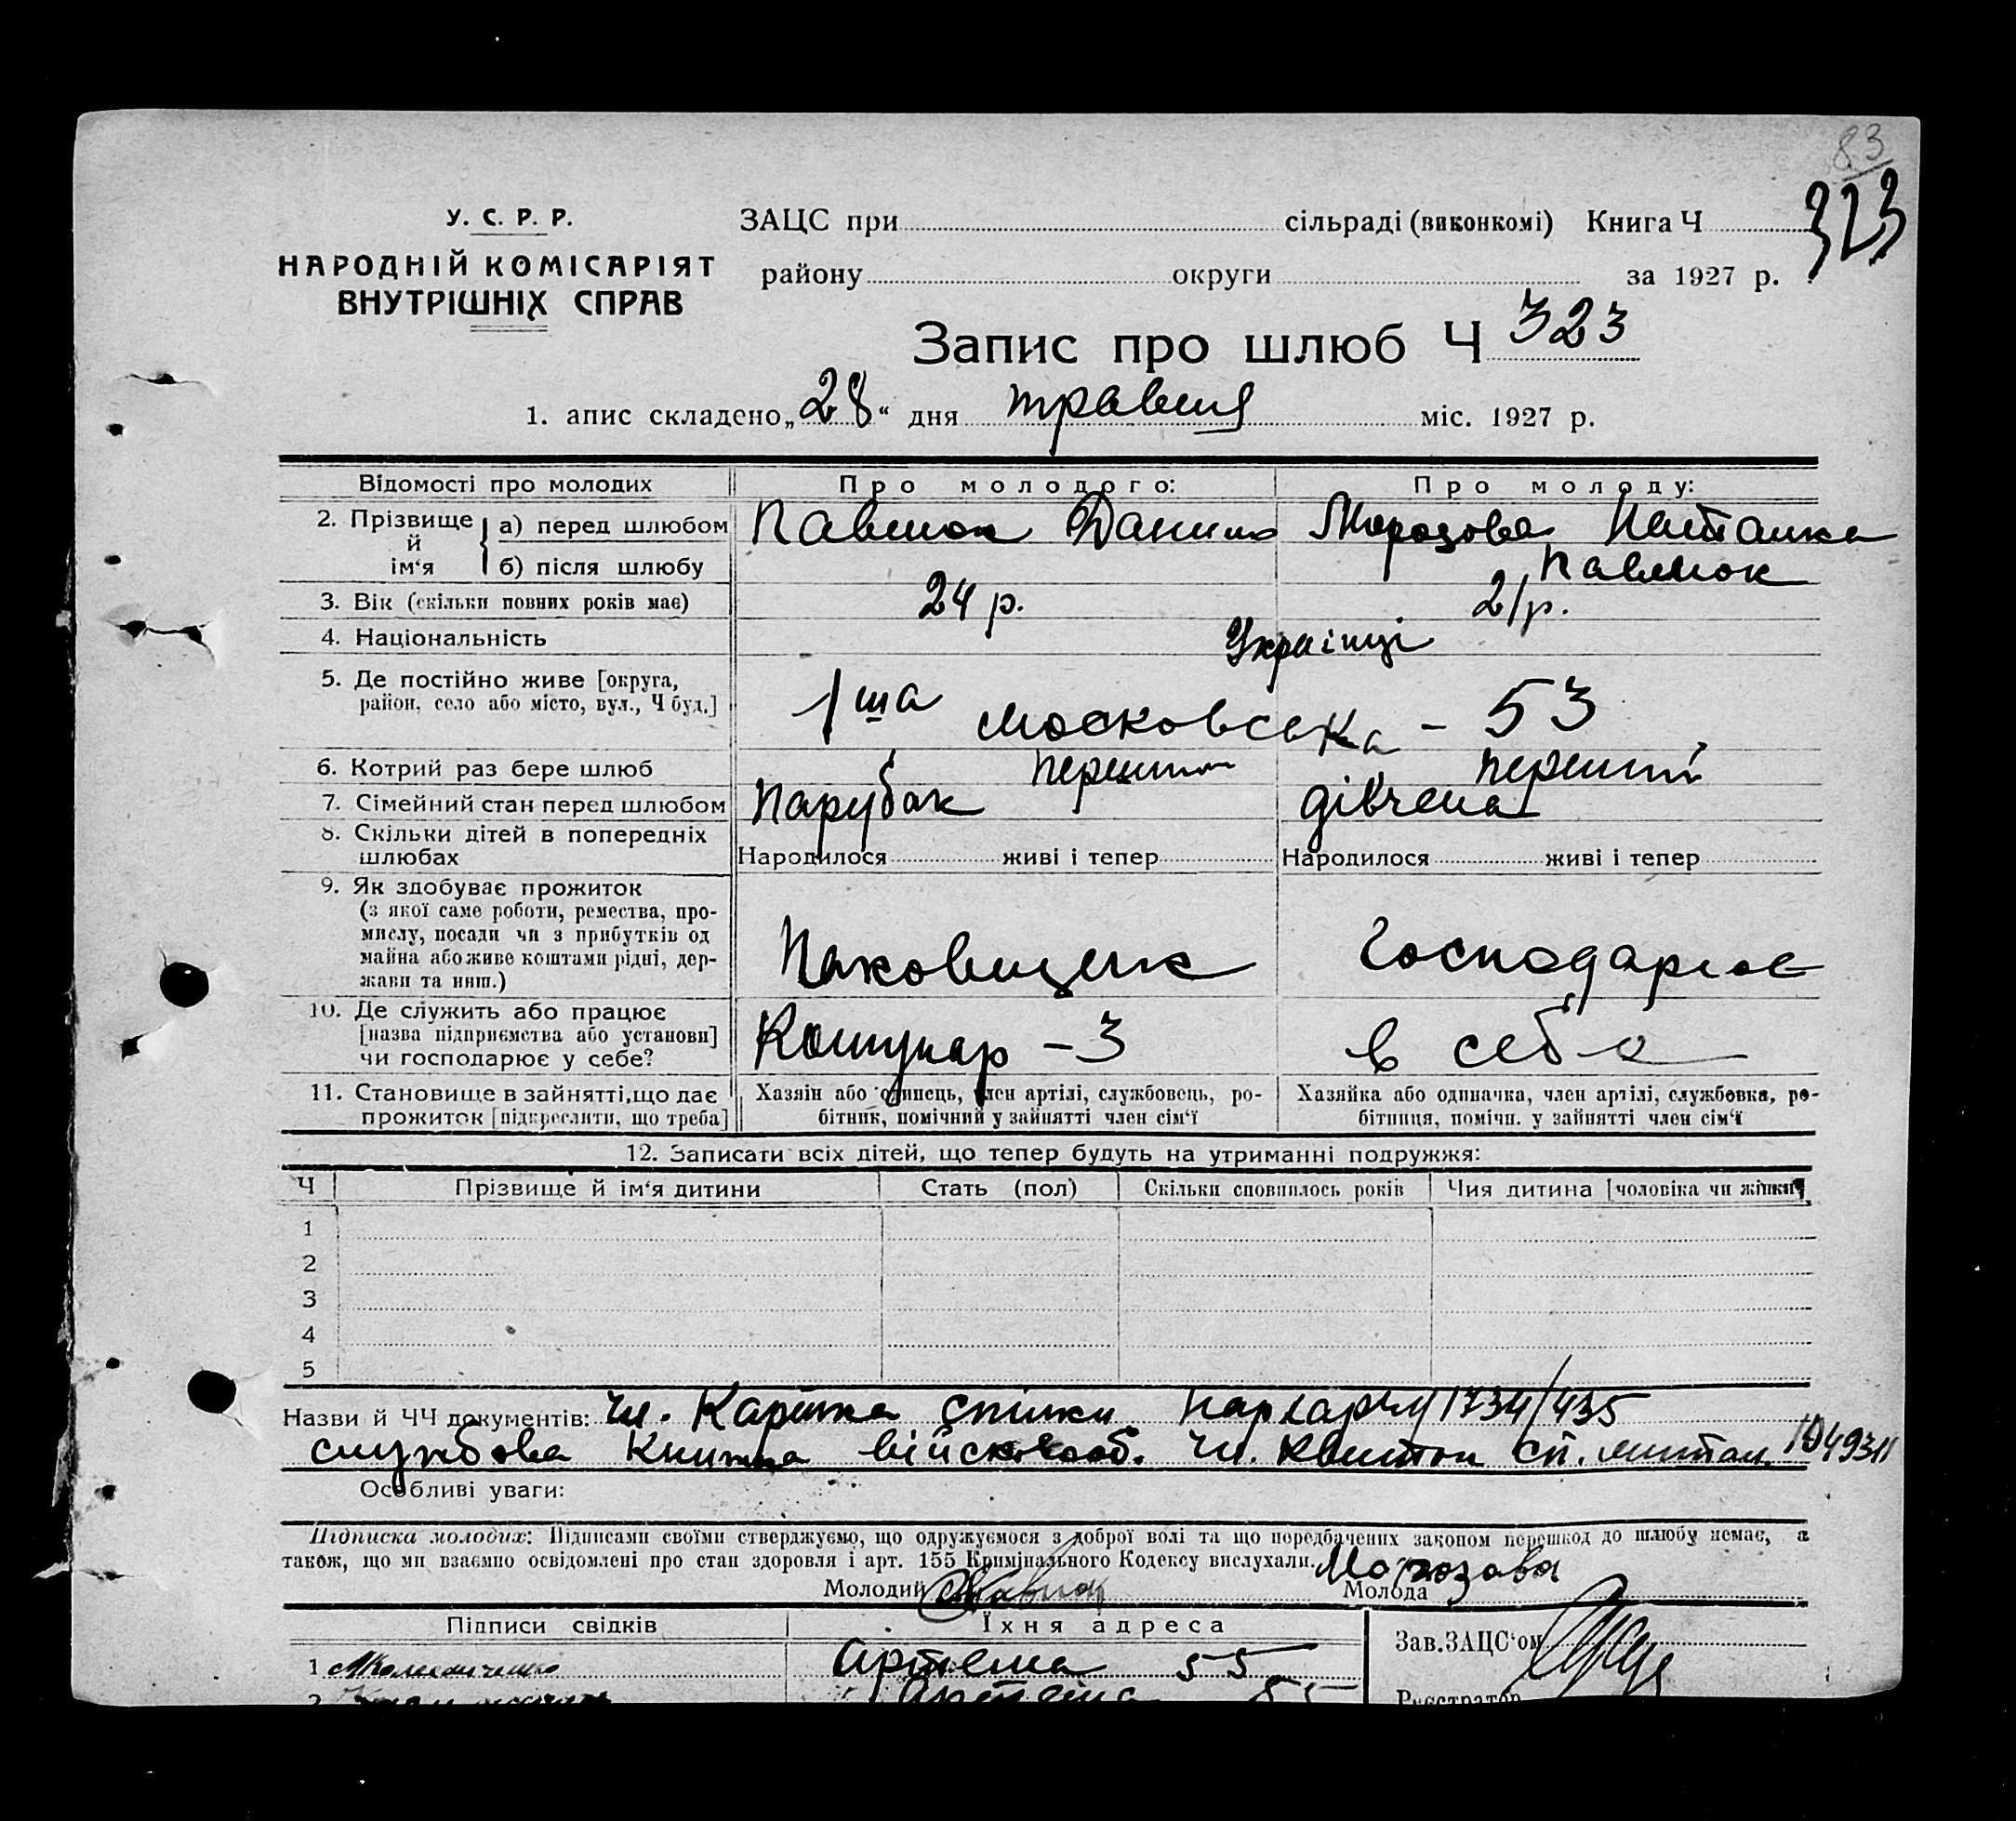 83
323
У. С. Р. Р.
НАРОДНІЙ КОМІСАРІЯТ
ВНУТРІШНІХ СПРАВ
ЗАЦС при сільраді (виконкомі) Книга Ч
району округи за 1927 р.
Запис про шлюб Ч 323
1. апис складено „28“ дня травня міс. 1927 р.
Відомості про молодих Про молодого: Про молоду:
2. Прізвище й ім‘я а) перед шлюбом Павлюк Данило Морозова Наталка
б) після шлюбу Павлюк
3. Вік (скільки повних років має) 24 р. 21 р.
4. Національність Українці
5. Де постійно живе [округа, район, село або місто, вул., Ч буд.] 1ша Московська - 53
6. Котрий раз бере шлюб перший перший
7. Сімейний стан перед шлюбом парубак дівчена
8. Скільки дітей в попередніх шлюбах Народилося живі і тепер Народилося живі і тепер
9. Як здобуває прожиток
(з якої саме роботи, ремества, про-
мислу, посади чи з прибутків од
майна або живе коштами рідні, дер-
жави та инш.) Паковщик Господарює
10. Де служить або працює
[назва підприємства або установи]
чи господарює у себе? Комунар - 3 в себе
11. Становище в зайнятті, що дає
прожиток [підкреслити, що треба]
Хазяїн або одинець, член артілі, службовець, ро-
бітник, помічний у зайнятті член сім‘ї
Хазяйка або одиначка, член артілі, службовка, ро-
бітниця, помічн. у зайнятті член сім‘ї
12. Записати всіх дітей, що тепер будуть на утриманні подружжя:
Ч Прізвище й ім‘я дитини Стать (пол) Скільки сповнилось років Чия дитина [чоловіка чи жінки]
1
2
3
4
5
Назви й ЧЧ документів: Чл. Картка спілки Нархарч 1734/435
службова книжка військовооб. Чл. квиток сп. 104931
Особливі уваги:
Підписка молодих: Підписами своїми стверджуємо, що одружуємося з доброї волі та що передбачених законом перешкод до шлюбу немає, а
також, що ми взаємно освідомлені про стан здоровля і арт. 155 Кримінального Кодексу вислухали.
Молодий Павлюк Молода Морозова
Підписи свідків Їхня адреса Зав. ЗАЦС‘ом
1 Артема 55
2 Артема 55 Реєстратор